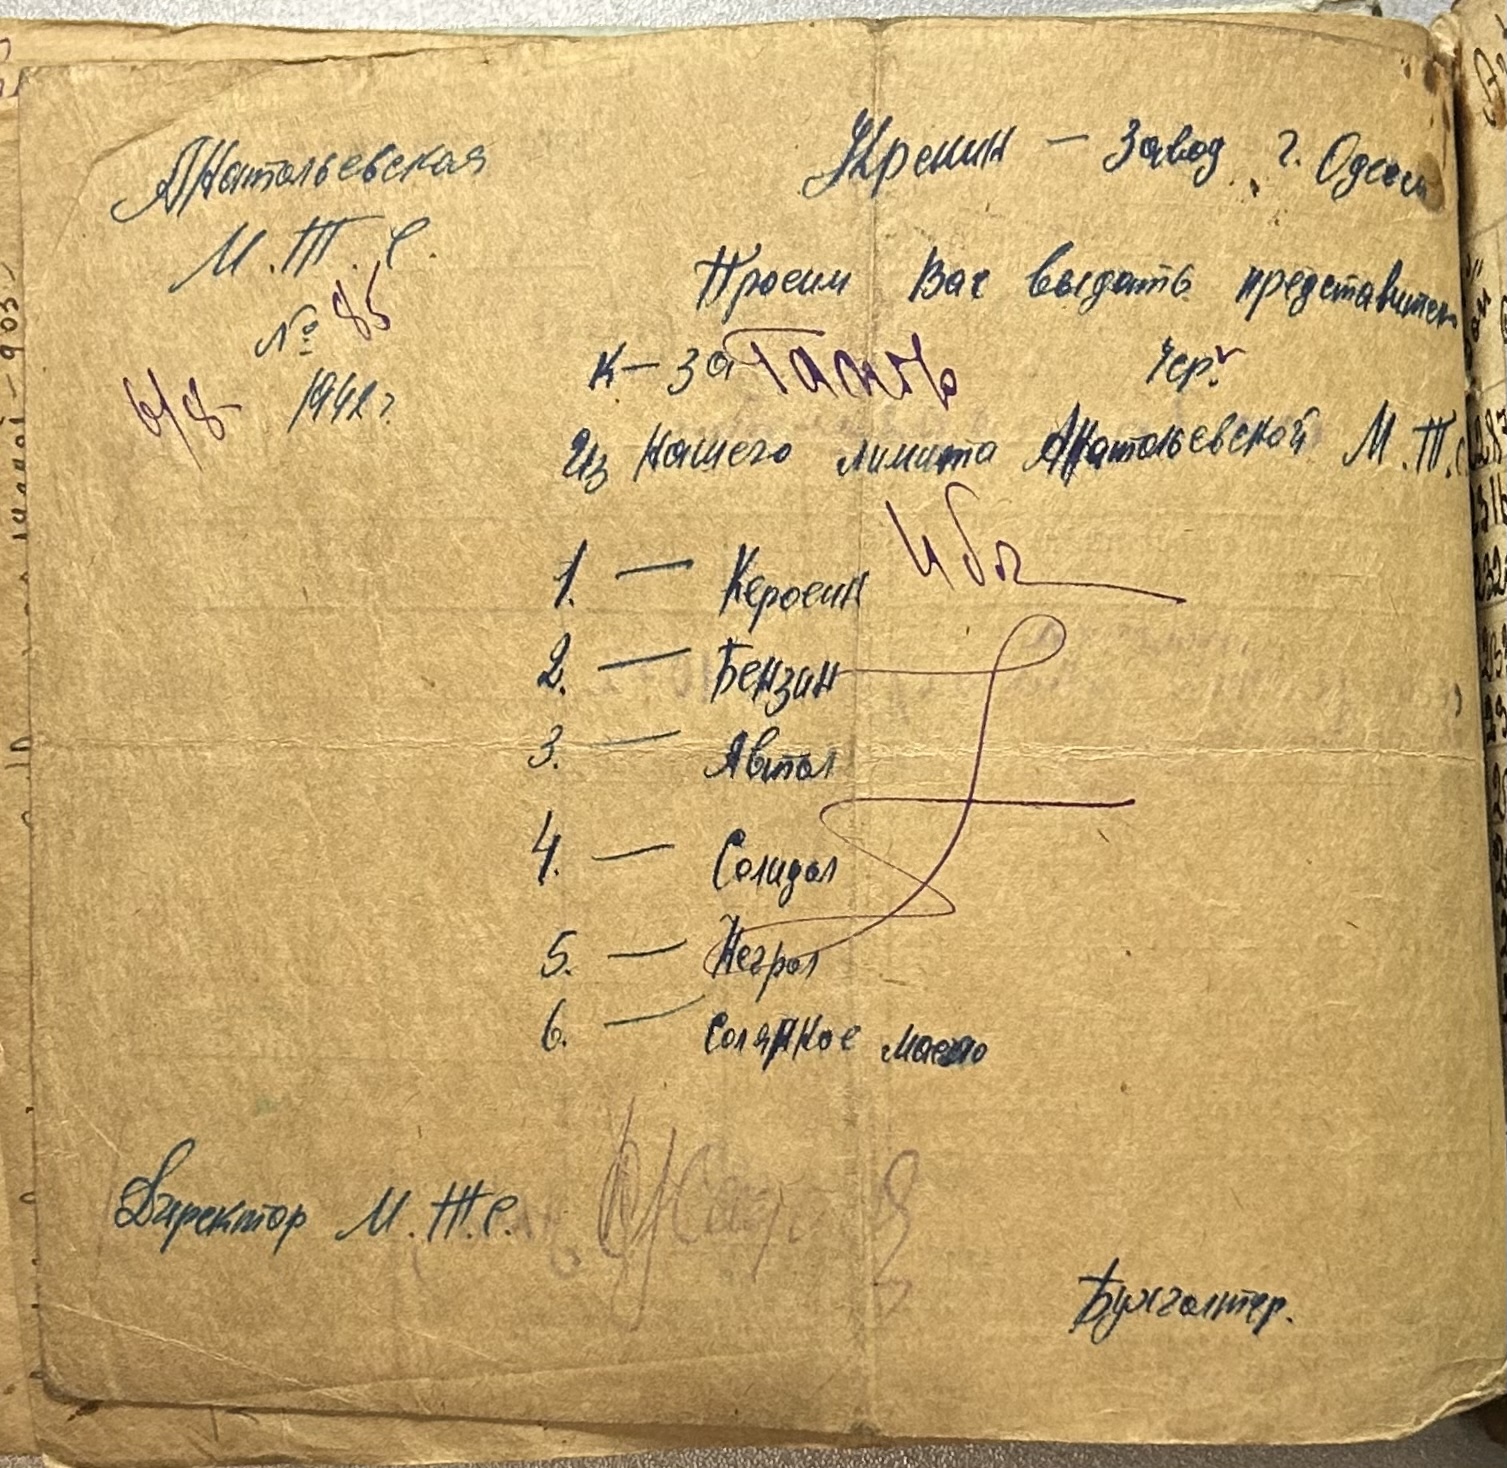 Анатольевская
М.Т.С.
№ 85
6/8 1942 г.
Крекин — Завод г. Одесса
Просим Вас выдать представител
к-за
Из нашего лимита Анатольевской М.Т.С
1. — Керосин
2. — Бензин
3. — Автол
4. — Солидол
5. — Негрол
6. — Солярное масло
Директор М.Т.С.
Бухгалтер.